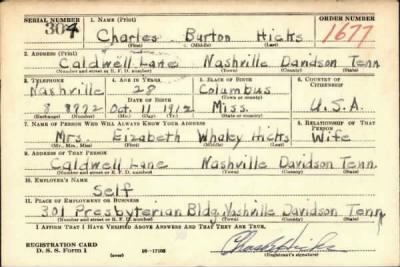 SERIAL NUMBER 1. NAME (Print) ORDER NUMBER
304 Charles Burton Hicks 1677
(First) (Middle) (Last)
2. ADDRESS (Print)
Caldwell Lane Nashville Davidson Tenn
(Number and street or R. F. D. number) (Town) (County) (State)
3. TELEPHONE 4. AGE IN YEARS 5. PLACE OF BIRTH 6. COUNTRY OF CITIZENSHIP
Nashville 28 Columbus
DATE OF BIRTH (Town or county)
8 8972 Oct 11 1912 Miss. U.S.A.
7. NAME OF PERSON WHO WILL ALWAYS KNOW YOUR ADDRESS 8. RELATIONSHIP OF THAT PERSON
Mrs. Eizabeth Whaley Hicks Wife
(Mr., Mrs., Miss) (First) (Middle) (Last)
9. ADDRESS OF THAT PERSON
Caldwell Lane Nashville Davidson Tenn.
(Number and street or R. F. D. number) (Town) (County) (State)
10. EMPLOYER'S NAME
Self
11. PLACE OF EMPLOYMENT OR BUSINESS
301 Presbyterian Bldg. Nashville Davidson Tenn
(Number and street or R. F. D. number) (Town) (County) (State)
I AFFIRM THAT I HAVE VERIFIED ABOVE ANSWERS AND THAT THEY ARE TRUE.
REGISTRATION CARD
D. S. S. Form 1 (over) (Registrant's signature)